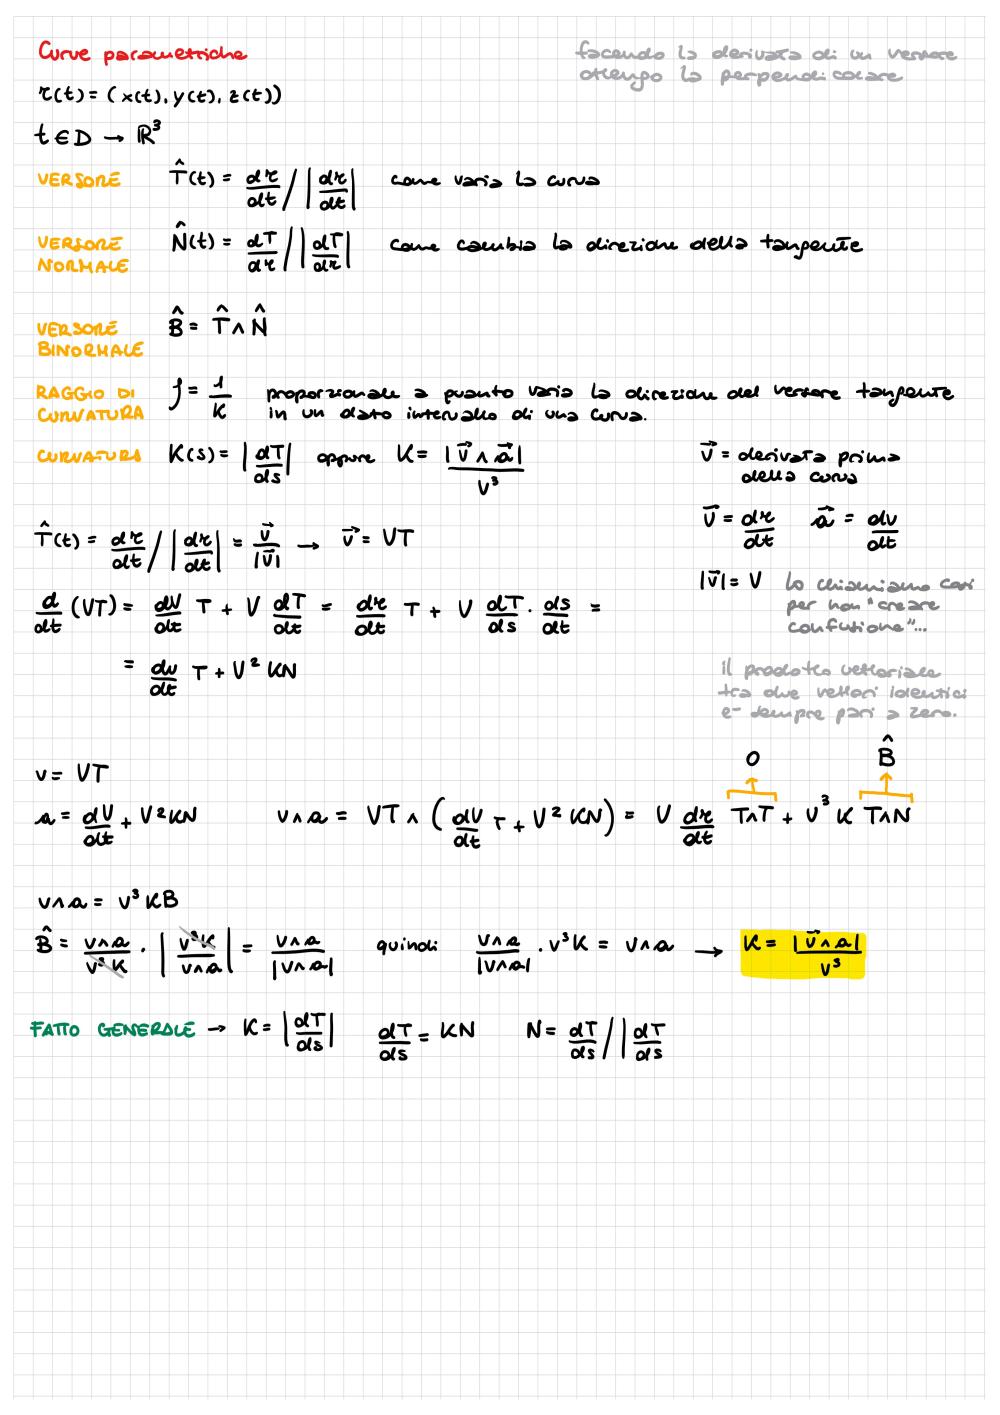 Curve parametriche
facendo la derivata di un versore
ottengo la perpendicolare
r(t) = (x(t), y(t), z(t))
t ∈ D → ℝ³
VERSORE T̂(t) = dr/dt / |dr/dt| come varia la curva
VERSORE NORMALE N̂(t) = dT/dr / |dT/dr| come cambia la direzione della tangente
VERSORE BINORMALE B̂ = T̂ ∧ N̂
RAGGIO DI CURVATURA ρ = 1/K proporzionale a quanto varia la direzione del versore tangente
in un dato intervallo di una curva.
CURVATURA K(s) = |dT/ds| oppure K = |v⃗ ∧ a⃗| / V³
v⃗ = derivata prima
della curva
v⃗ = dr/dt a⃗ = dv/dt
T̂(t) = dr/dt / |dr/dt| = v⃗/|v⃗| → v⃗ = VT
|v⃗| = V lo chiamiamo così
per non "creare
confusione"...
d/dt (VT) = dV/dt T + V dT/dt = dr/dt T + V dT/ds · ds/dt =
= dv/dt T + V² KN
il prodotto vettoriale
tra due vettori identici
e- sempre pari a zero.
v = VT
0 B̂
a = dV/dt + V² KN v∧a = VT ∧ (dV/dt T + V² KN) = V dr/dt T∧T + V³ K T∧N
v∧a = v³ KB
B̂ = v∧a / v³K · |v³K / v∧a| = v∧a / |v∧a| quindi v∧a / |v∧a| · v³K = v∧a → K = |v⃗∧a| / v³
FATTO GENERALE → K = |dT/ds| dT/ds = KN N = dT/ds / |dT/ds